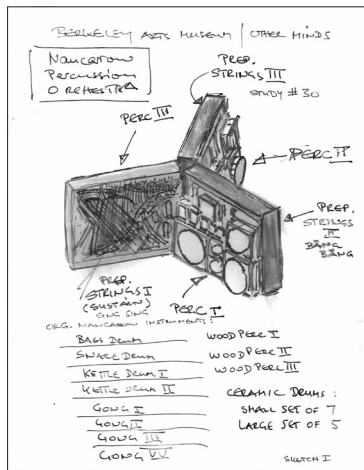 BERKELEY ARTS MUSEUM / OTHER MINDS
Nancarrow
Percussion
ORCHESTRA
PREP.
STRINGS III
STUDY #30
PERC III
PERC II
PREP.
STRINGS
II
BÄNG
BÄNG
PREP.
STRINGS I
(SUSTAIN)
SING SING
PERC I
ORG. NANCARROW INSTRUMENTS:
BASS DRUM
SNARE DRUM
KETTLE DRUM I
KETTLE DRUM II
GONG I
GONG II
GONG III
GONG IV
WOOD PERC I
WOOD PERC II
WOOD PERC III
CERAMIC DRUMS:
SMALL SET OF 7
LARGE SET OF 5
SKETCH I